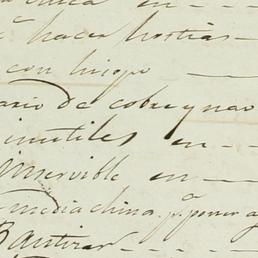 en
a hacer hostias
con hisopo
de cobre y na
inutiles en
Ynservible en
media china pa. poner a
Bautizar